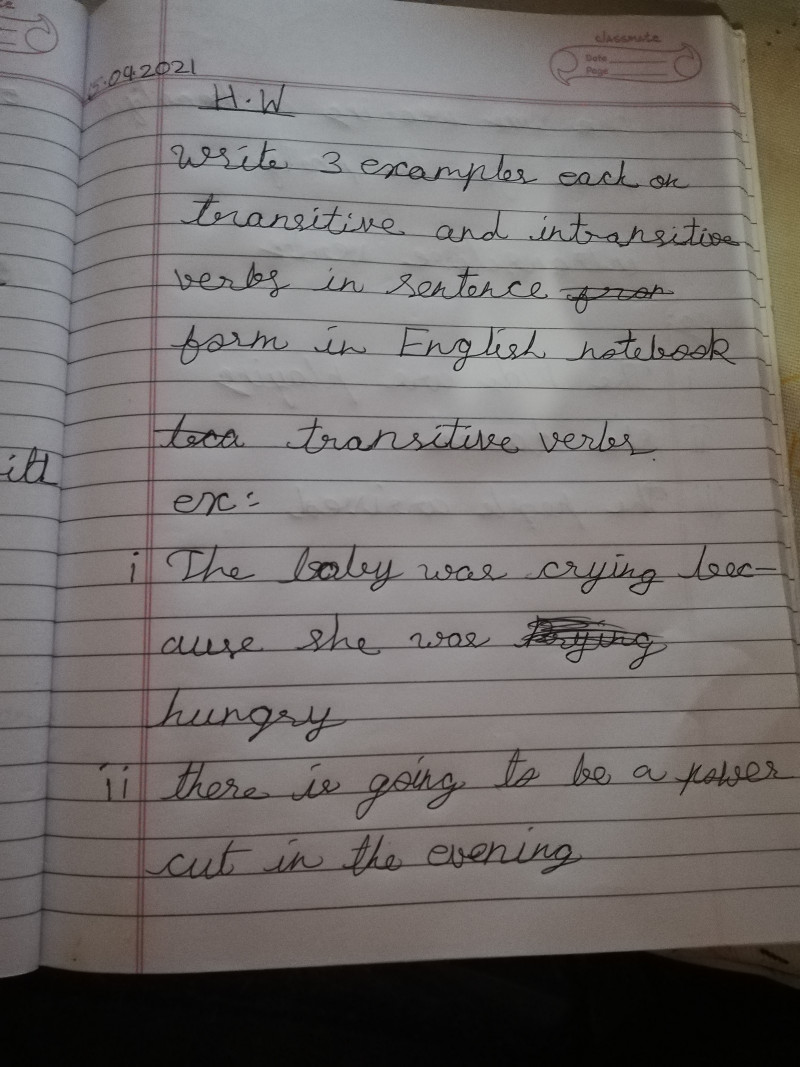 classmate
Date
Page
5.09.2021
H.W
Write 3 examples each on
transitive and intransitive
verbs in sentence
form in English notebook
transitive verbs.
ex:
i The baby was crying bec-
ause she was
hungry
ii there is going to be a power
cut in the evening
ill